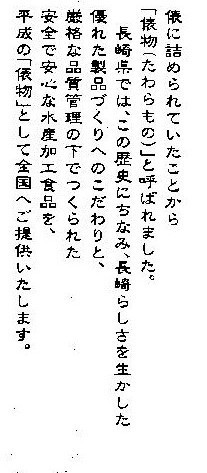 俵に詰められていたことから
「俵物(たわらもの)」と呼ばれました。
長崎県では、この歴史にちなみ、長崎らしさを生かした
優れた製品づくりへのこだわりと、
厳格な品質管理の下でつくられた
安全で安心な水産加工食品を、
平成の「俵物」として全国へご提供いたします。